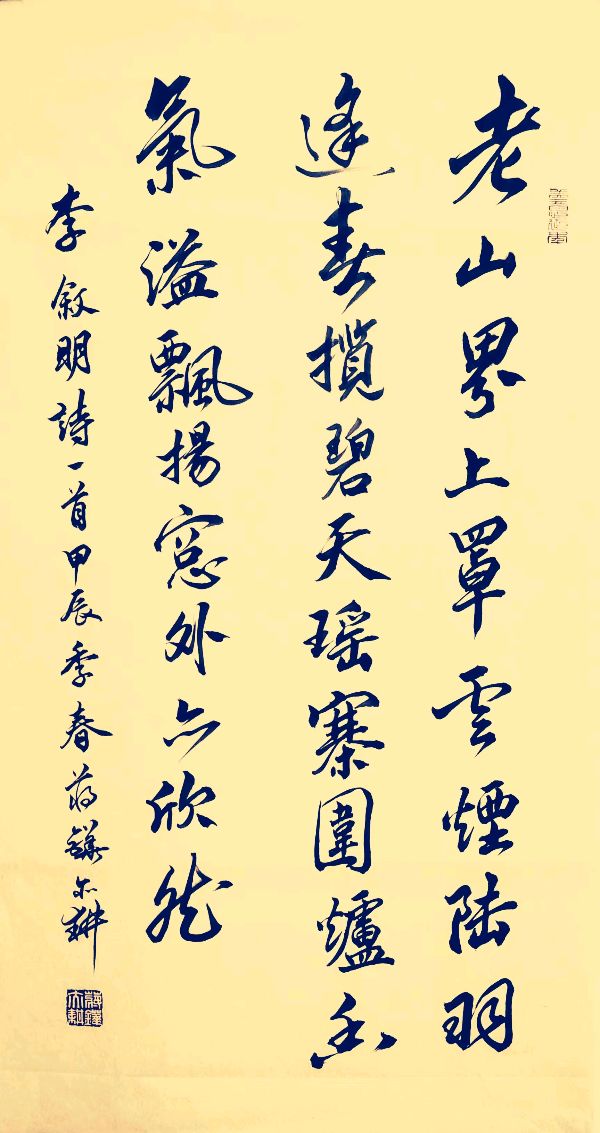 老山界上罩雲煙陸羽
逢春攬碧天瑶寨圍爐香
氣溢飄揚窓外亦欣然
李叙明詩一首甲辰季春蒋